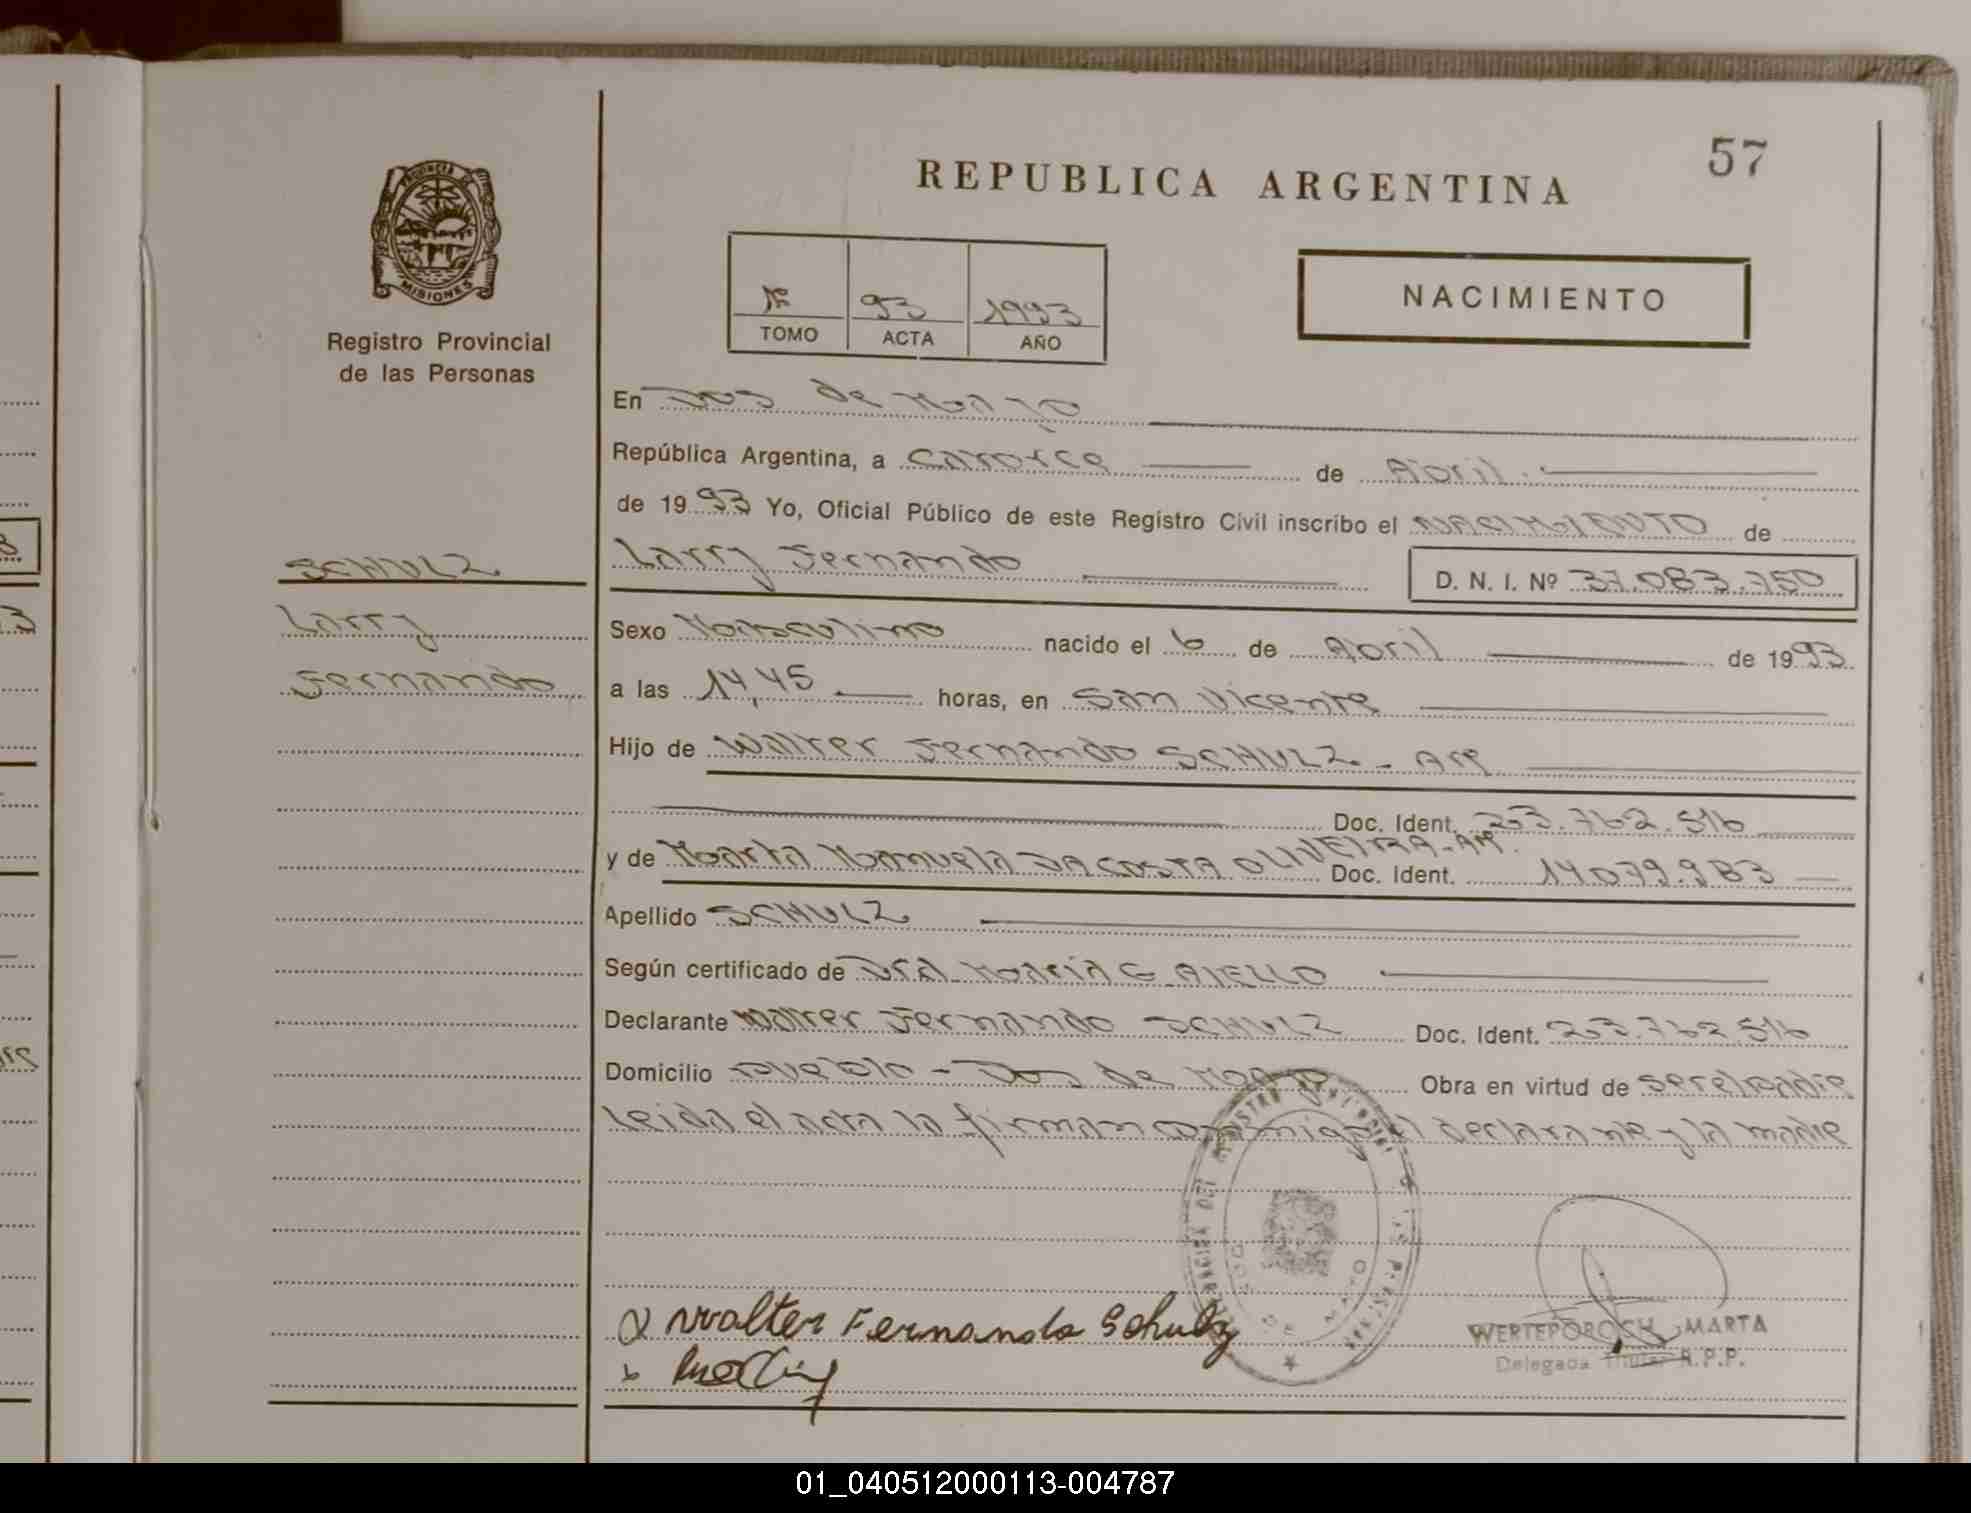 57
REPUBLICA ARGENTINA
PROVINCIA DE
MISIONES
Registro Provincial
de las Personas
NACIMIENTO
1º 93 1993
TOMO ACTA AÑO
En Dos de Mayo
República Argentina, a catorce de Abril
de 1993 Yo, Oficial Público de este Registro Civil inscribo el NACIMIENTO de
SCHULZ
Larry Fernando D. N. I. Nº 37.083.750
Larry
Sexo Masculino nacido el 6 de Abril de 1993
Fernando
a las 14,45 horas, en San Vicente
Hijo de Walter Fernando SCHULZ - Arg
Doc. Ident. 23.762.516
y de Marta Manuela DA COSTA OLIVEIRA - Arg. Doc. Ident. 14.079.983
Apellido SCHULZ
Según certificado de Dra. María G AIELLO
Declarante Walter Fernando SCHULZ Doc. Ident. 23.762.516
Domicilio Pueblo - Dos de Mayo Obra en virtud de ser el padre
Leida el acta la firman conmigo el declarante y la madre
DOS DE MAYO
Walter Fernando Schulz
WERTEPOROCH MARTA
Delegada Titular R.P.P.
01_040512000113-004787